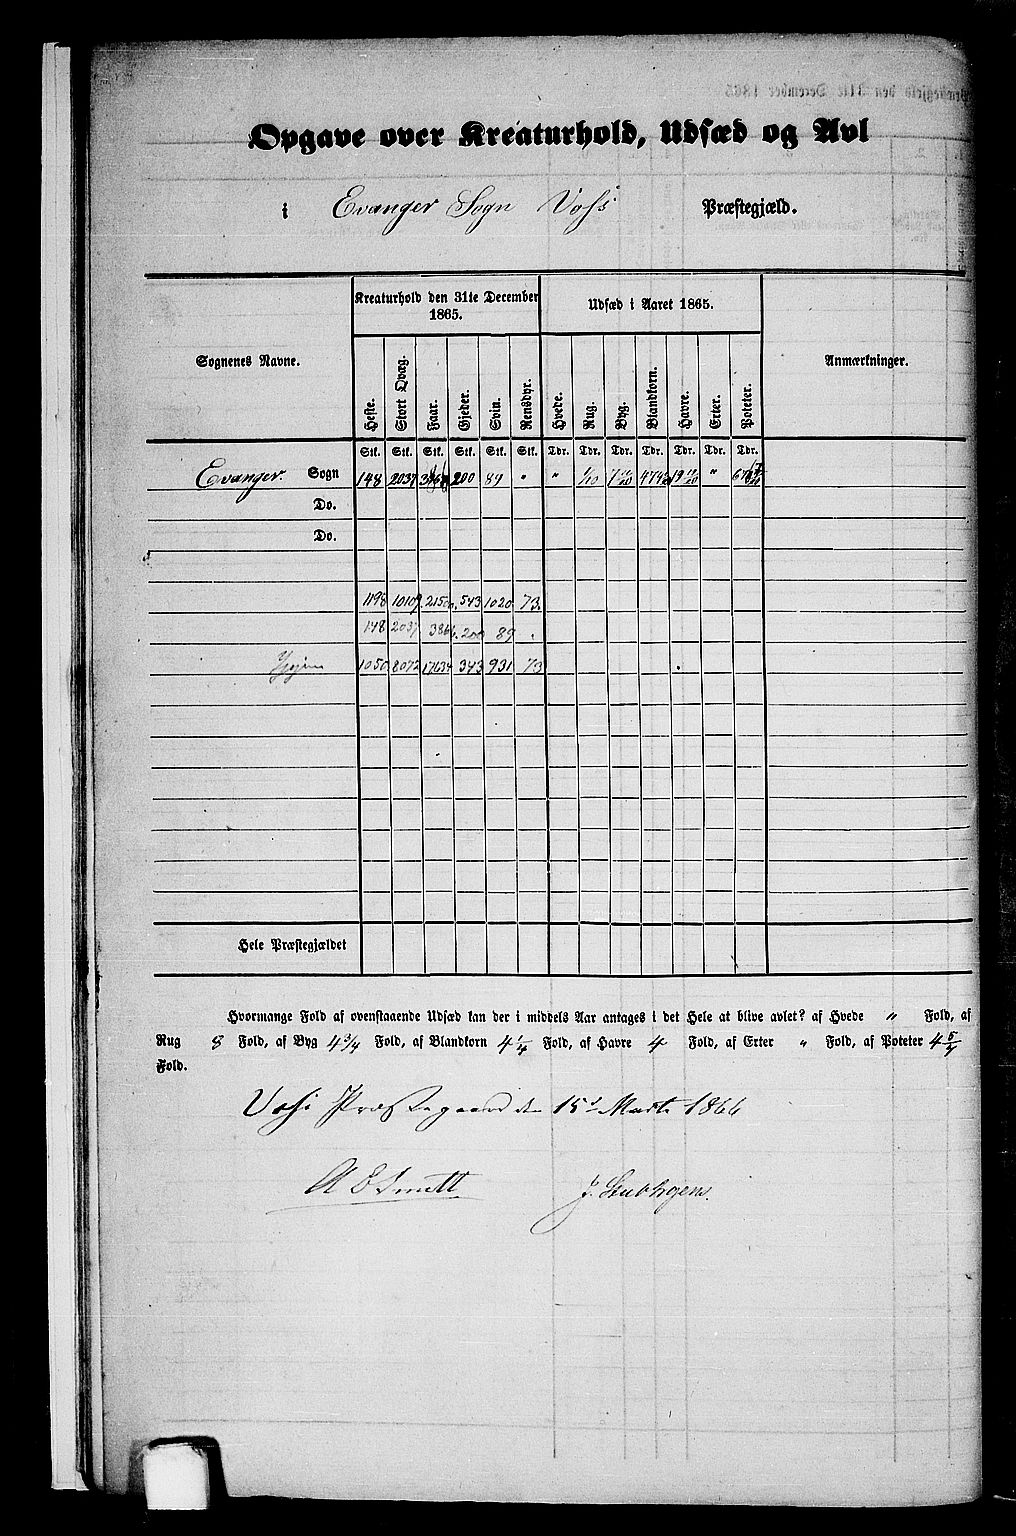 Opgave over Kreaturhold, Udsæd og Avl
i Evanger Sogn Voss Præstegjæld.
Kreaturhold den 31te December 1865. Udsæd i Aaret 1865.
Sognenes Navne. Heste. Stort Qvæg. Faar. Gjeder. Svin. Rensdyr. Hvede. Rug. Byg. Blandkorn. Havre. Erter. Poteter. Anmærkninger.
Stk. Stk. Stk. Stk. Stk. Stk. Tdr. Tdr. Tdr. Tdr. Tdr. Tdr. Tdr.
Evanger. Sogn 148 2037 200 89 " " 1/10 "
Do.
Do.
1198 10109 543 1020 73.
148 2037 3866 200 89 "
1050 8072 17634 343 931 73
Hele Præstegjældet
Hvormange Fold af ovenstaaende Udsæd kan der i middels Aar antages i det Hele at blive avlet? af Hvede " Fold, af
Rug 8 Fold, af Byg 4 3/4 Fold, af Blandkorn 4 1/4 Fold, af Havre 4 Fold, af Erter " Fold, af Poteter 4 5/7
Fold.
Voss Præstegaard den 15d Marts 1866